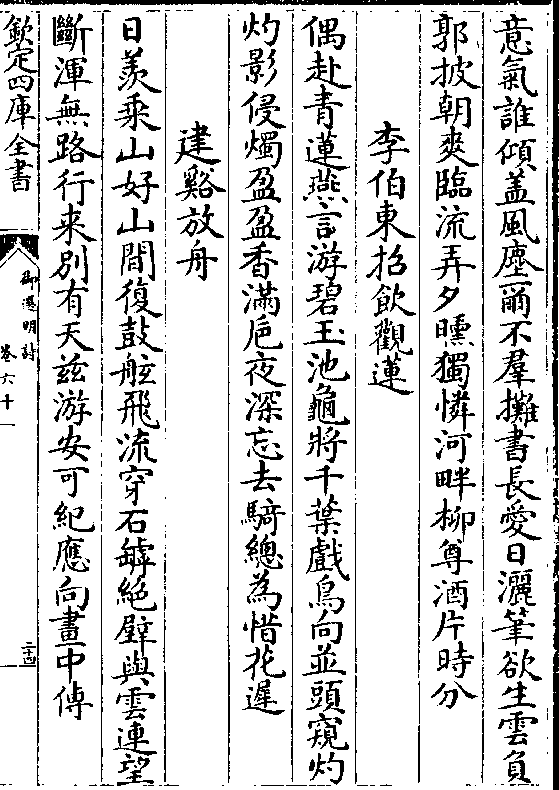 意氣誰傾盖風塵爾不羣攤書長愛日灑筆欲生雲負
郭披朝爽臨流弄夕曛獨憐河畔柳尊酒片時分
李伯東招飲觀蓮
偶赴青蓮燕言游碧玉池龜將千葉戲鳥向並頭窺灼
灼影侵燭盈盈香滿巵夜深忘去騎總為惜花遲
建谿放舟
日羨乘山好山間復鼓舷飛流穿石罅絶壁與雲連望
斷渾無路行来別有天兹游安可紀應向畫中傳
欽定四庫全書
御選明詩
卷六十一
二十四